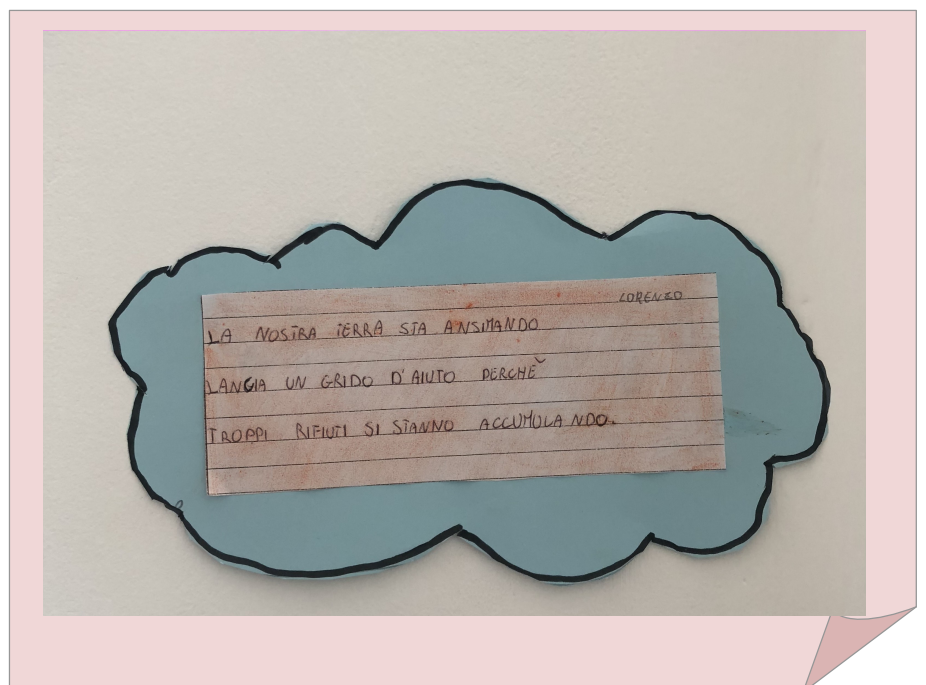 LORENZO
LA NOSTRA TERRA STA ANSIMANDO
LANCIA UN GRIDO D'AIUTO PERCHÈ
TROPPI RIFIUTI SI STANNO ACCUMULANDO.